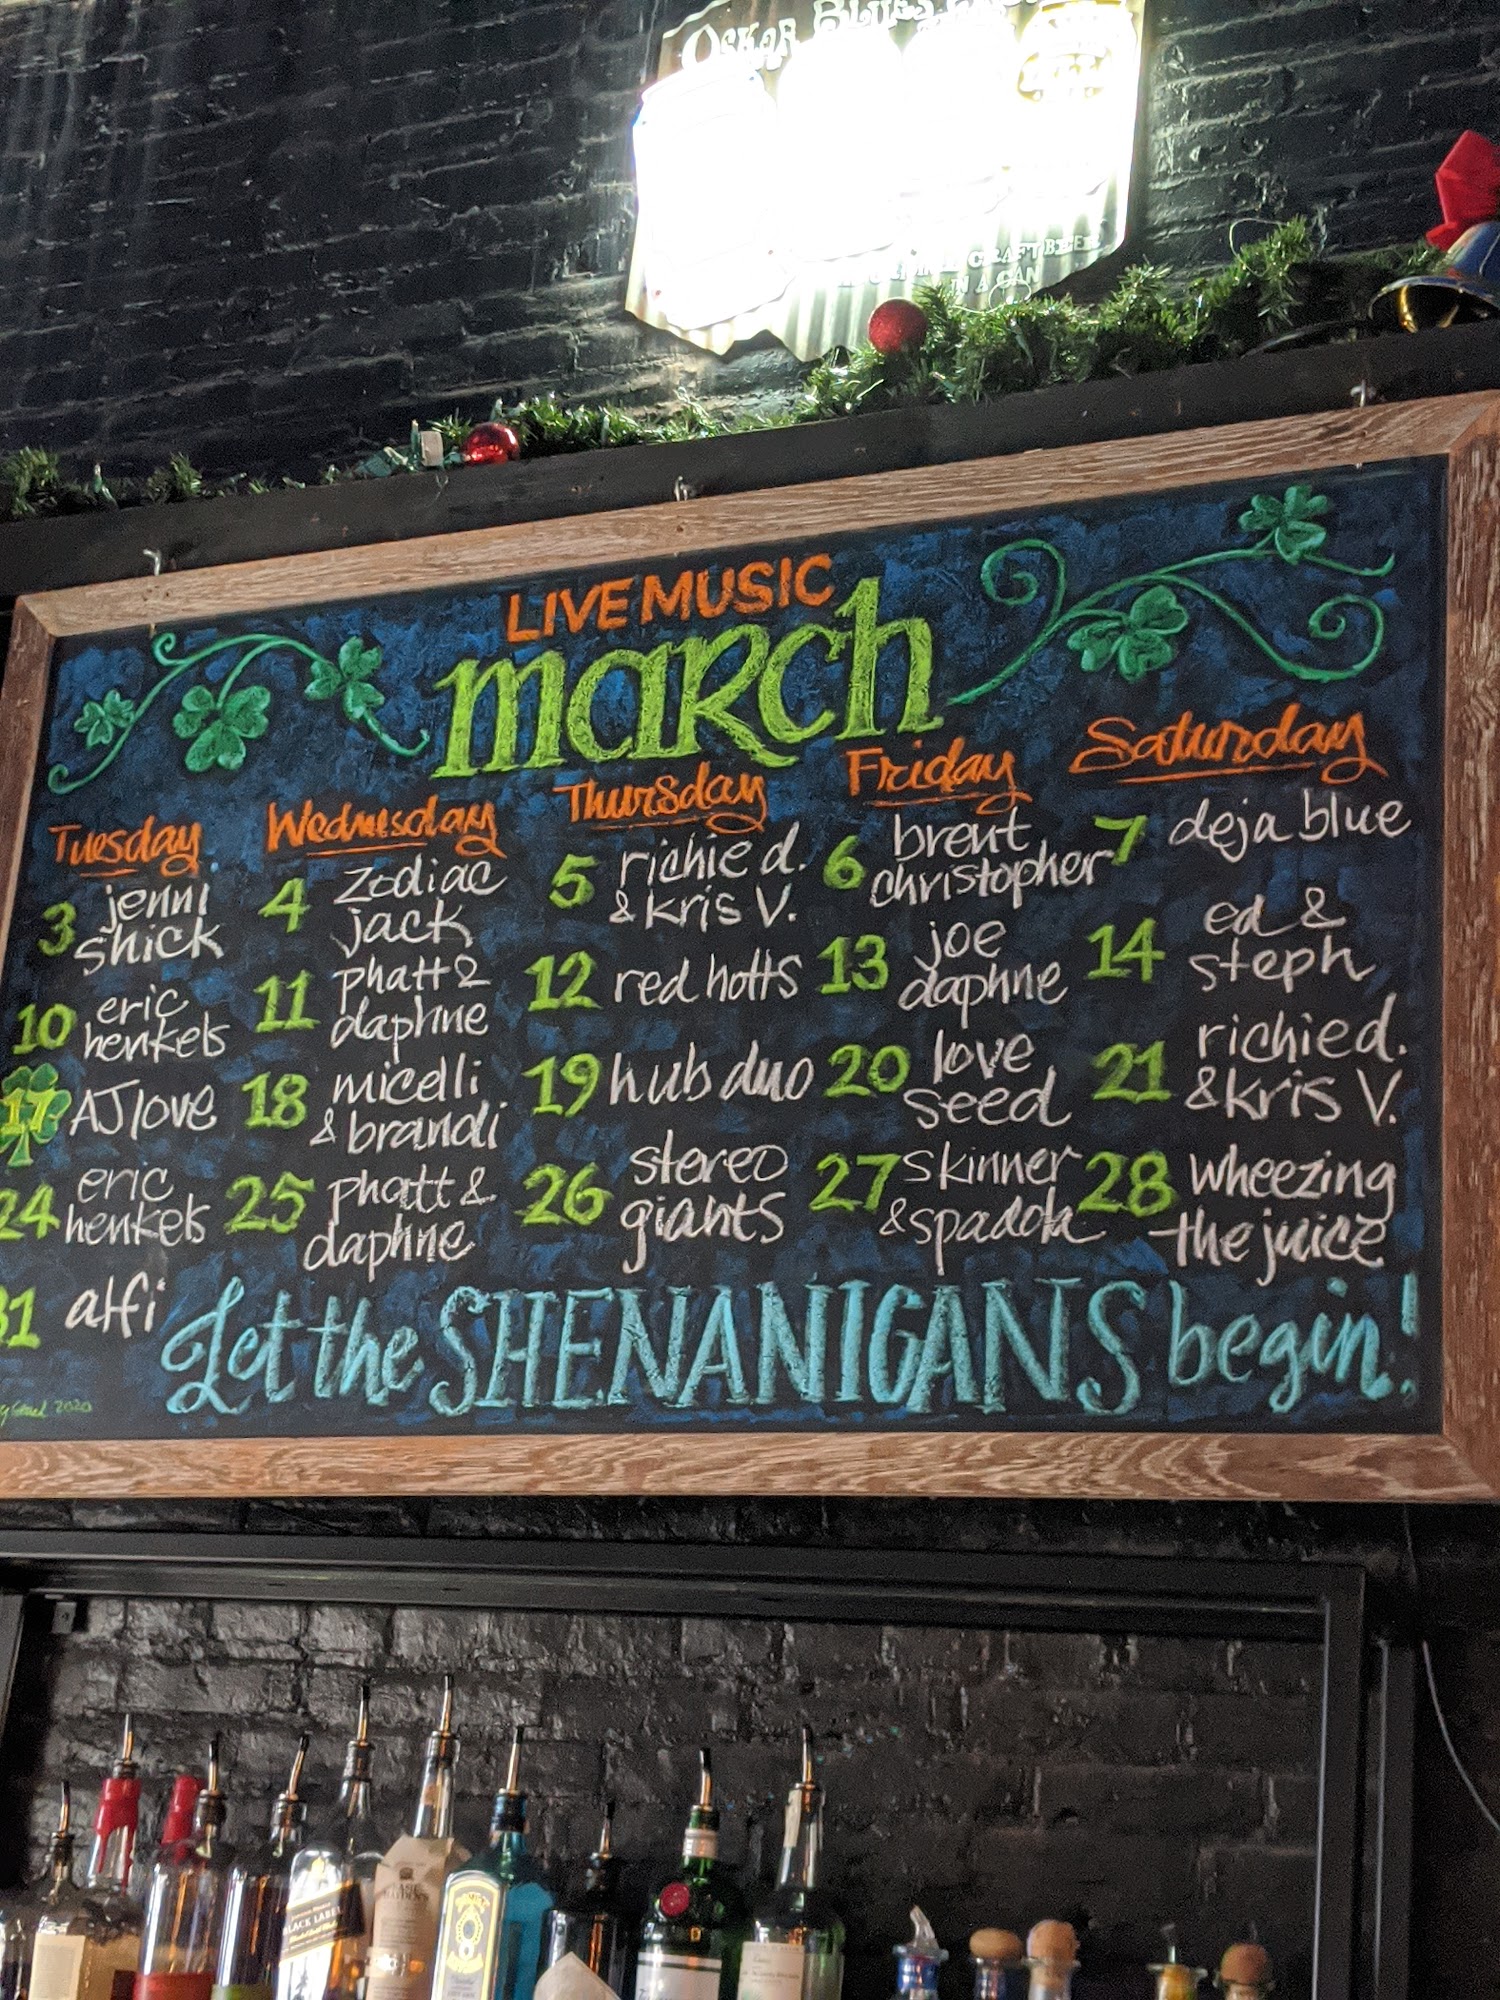 OSKAR BLUES
CRAFT BEER
IN A CAN
LIVE MUSIC
march
Tuesday
Wednesday
Thursday
Friday
Saturday
3 jenni
shick
4 zodiac
jack
5 richie d.
& kris V.
6 brent
christopher
7 deja blue
10 eric
henkels
11 phatt &
daphne
12 red hotts
13 joe
daphne
14 ed &
steph
17 AJ love
18 micelli
& brandi
19 hub duo
20 love
seed
21 richie d.
& kris V.
24 eric
henkels
25 phatt &
daphne
26 stereo
giants
27 skinner
& spadola
28 wheezing
the juice
31 alfi
Let the SHENANIGANS begin!
2020
BLACK LABEL